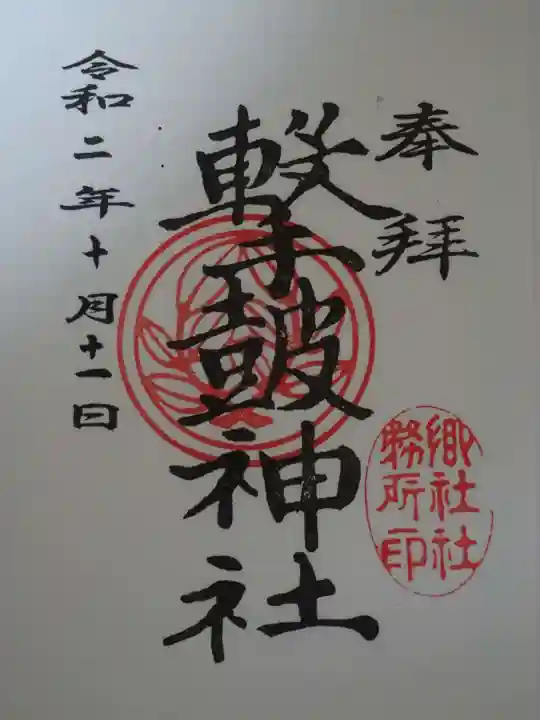 奉拝
撃鼓神社
令和二年十月十一日
郷社社
務所印